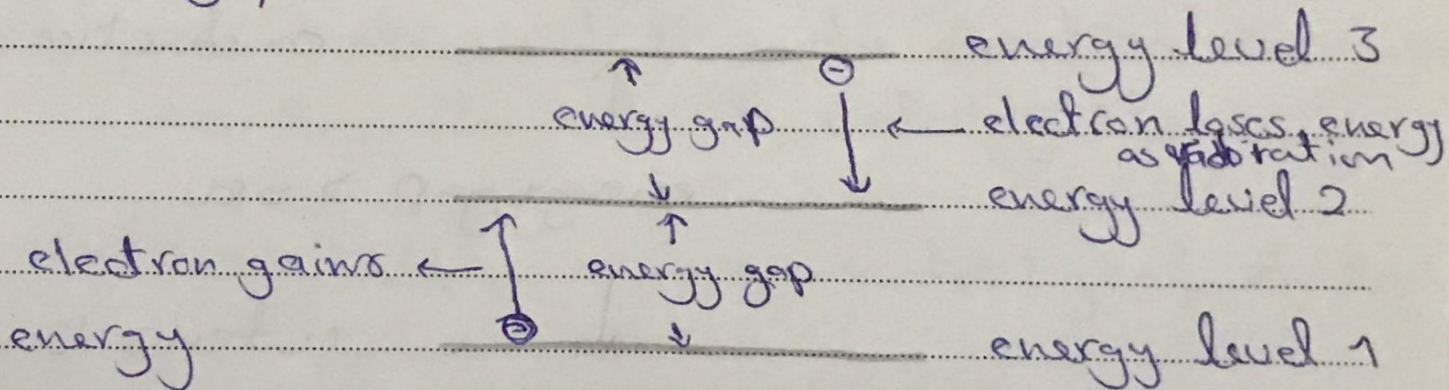 energy level 3
energy gap
electron loses energy
as
energy level 2
electron gains
energy gap
energy
energy level 1